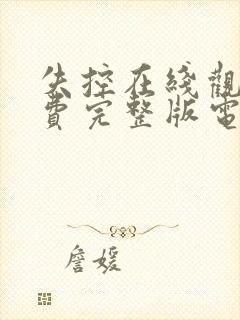 失控在綫觀
費完整版電
詹媛